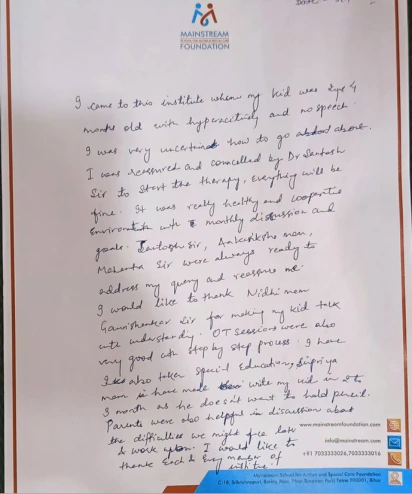 Date -
MAINSTREAM
FOUNDATION
I came to this institute when my kid was 2yr 4
months old with hyperacitivity and no speech.
I was very uncertained how to go about above.
I was reassured and councelled by Dr Santosh
Sir to start the therapy, everything will be
fine. It was really healthy and cooperative
environment with monthly discussion and
goals. Santosh Sir, Aakanksha mam,
Mahanta Sir were always ready to
address my query and reassure me.
I would like to thank Nidhi mam
Gaurishankar Sir for making my kid talk
with understandy. OT Sessions were also
very good with step by step process. I have
also taken special education, Supriya
mam have made write my kid in 2 to
3 month as he doesn't want to hold pencil.
Parents were also helpful in discussion about
the difficulties we might face late
& work upon. I would like to
thank Each & Every member of
with
www.mainstreamfoundation.com
info@mainstream.com
+91 7033333026,7033333016
Mainstream School for Autism and Special Care Foundation